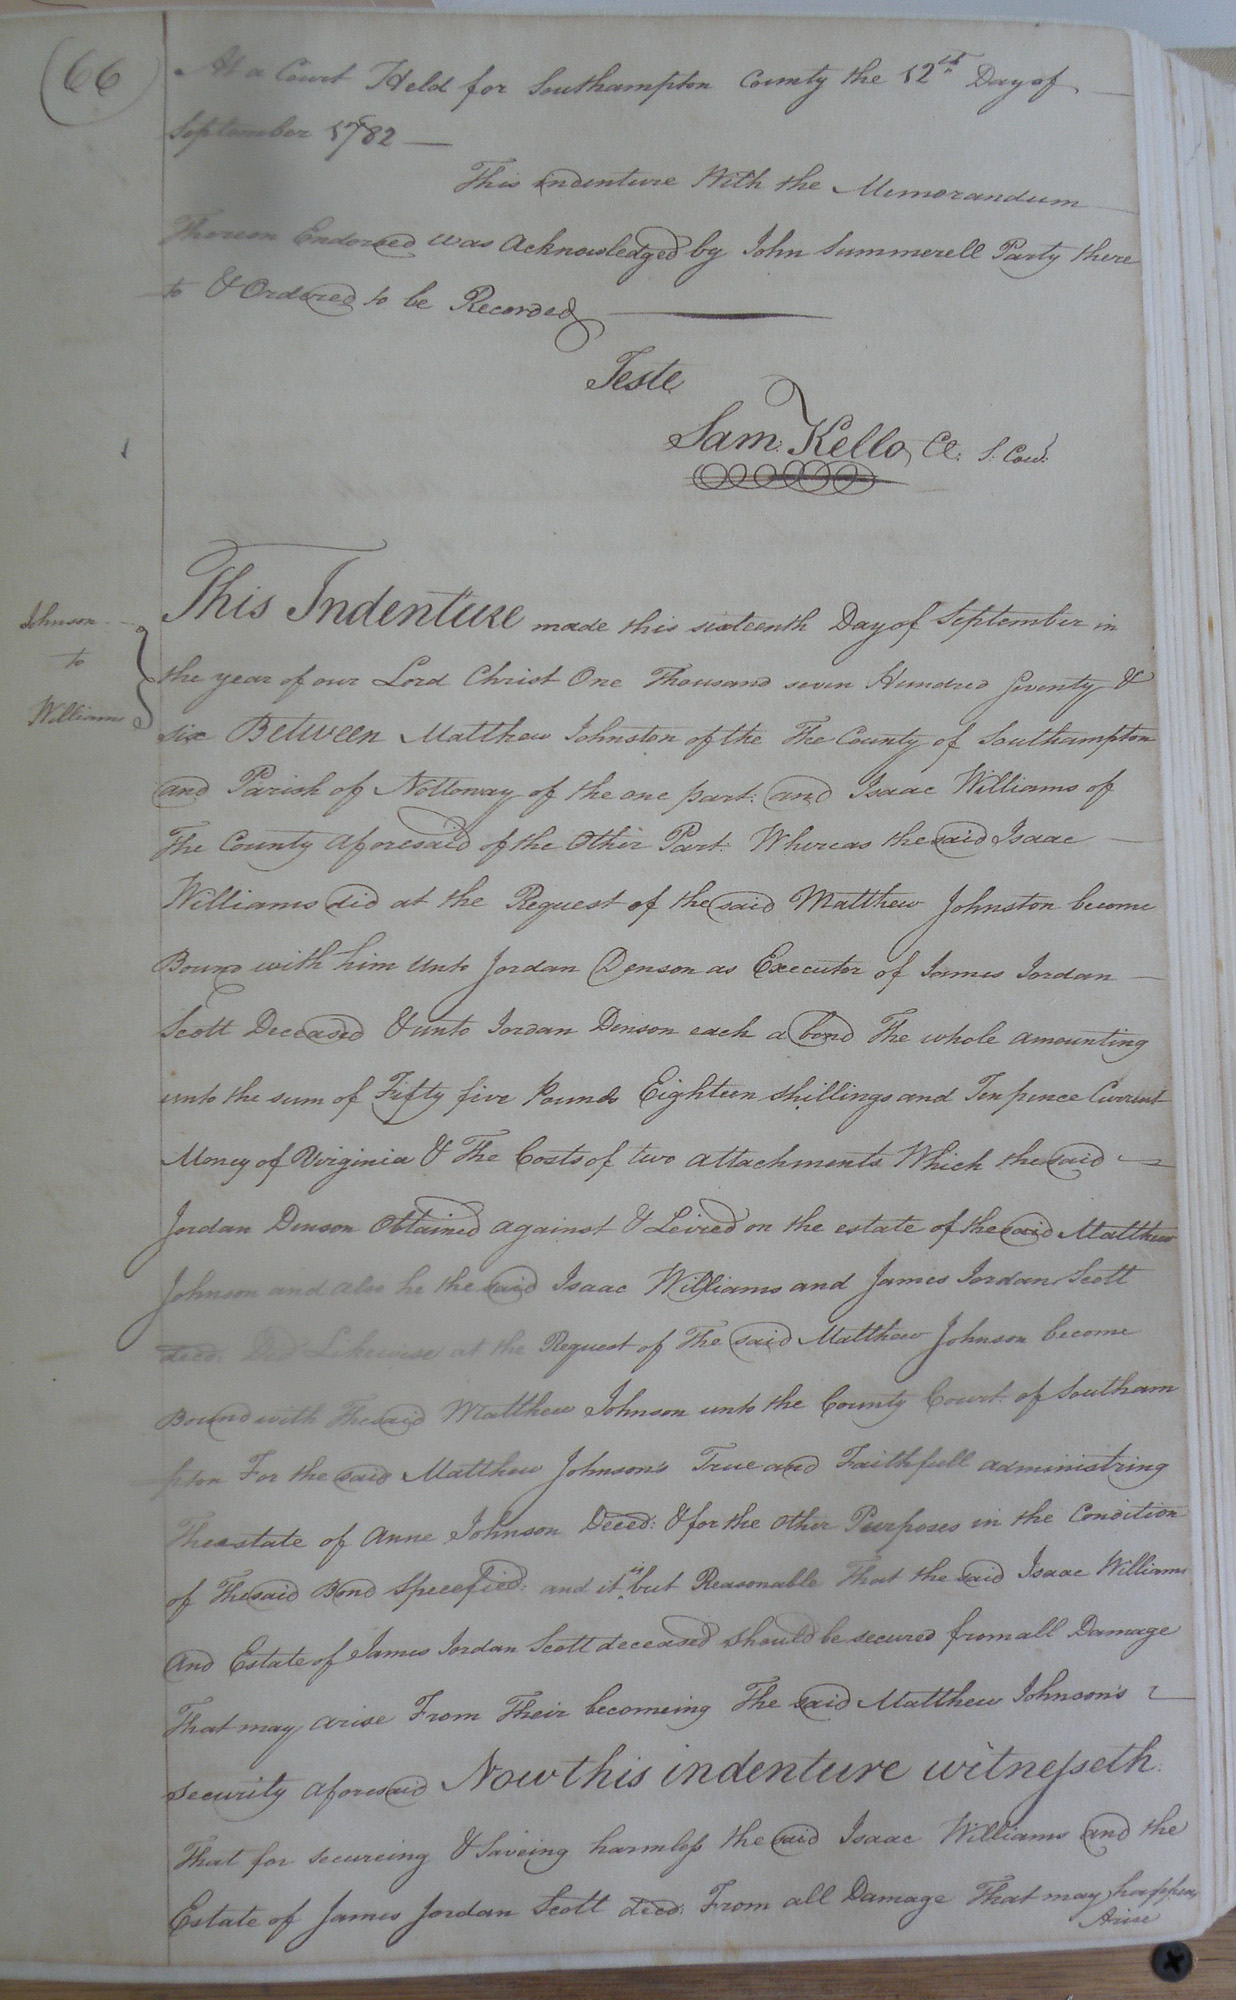 66
At a Court Held for Southampton County the 12th Day of
September 1782 —
This indenture With the Memorandum
Thereon Endorsed was Acknowledged by John Summerell Party there
to & Ordered to be Recorded
Teste
Sam: Kello, Cl: S. Cou:
Johnson
to
Williams
This Indenture made this sixteenth Day of September in
the year of our Lord Christ One Thousand seven Hundred Seventy &
six Between Matthew Johnston of the The County of Southampton
and Parish of Nottoway of the one part: and Isaac Williams of
The County aforesaid of the Other Part: Whereas the said Isaac
Williams did at the Request of the said Matthew Johnston become
Bound with him Unto Jordan Denson as Executor of James Jordan
Scott Deceased & unto Jordan Denson each a bond The whole amounting
unto the sum of Fifty five Pounds Eighteen shillings and Ten pence Current
Money of Virginia & The Costs of two attachments Which the said
Jordan Denson Obtained against & Levied on the estate of the said Matthew
Johnson and also he the said Isaac Williams and James Jordan Scott
decd: Did Likewise at the Request of The said Matthew Johnson become
Bound with The said Matthew Johnson unto the County Court of Southam
pton For the said Matthew Johnson's True and Faithfull administring
The estate of Anne Johnson Deced: & for the other Purposes in the Condition
of The said Bond Specefied: and it is but Reasonable That the said Isaac Williams
And Estate of James Jordan Scott deceased should be secured from all Damage
That may arise From Their becomeing The said Matthew Johnson's
security aforesaid Now this indenture witnesseth:
That for secureing & Saveing harmless the said Isaac Williams and the
Estate of James Jordan Scott decd: From all Damage That may happen
Arise